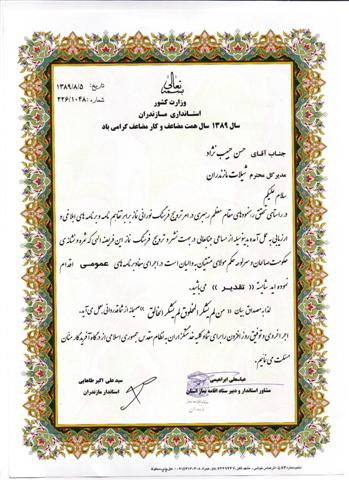 بسمه تعالی
تاریخ: ۱۳۸۹/۸/۵
شماره: ۲۲۶/۱۰۴۸
وزارت کشور
استانداری مازندران
سال ۱۳۸۹ سال همت مضاعف و کار مضاعف گرامی باد
جناب آقای حسن حبیب نژاد
مدیر کل محترم شیلات مازندران
سلام علیکم
در راستای تحقق رهنمودهای مقام معظم رهبری در امر ترویج فرهنگ نورانی نماز برابر تفاهم نامه و برنامه های ابلاغی و
ارزیابی به عمل آمده بدینوسیله از مساعی جنابعالی در جهت نشر و ترویج فرهنگ نماز این فریضه الهی که ثمره و نشانه ی
حکومت صالحان و سرلوحه حکم مولای متقیان به والیان است در اجرای مفاد برنامه های عمومی اقدام
نموده اید شایسته « تقدیر » می باشید.
لذا به مصداق بیان « من لم یشکر المخلوق لم یشکر الخالق » صمیمانه از شما قدردانی بعمل می آید.
اجر اخروی و توفیق روز افزون را برای شما و کلیه خدمتگزاران به نظام مقدس جمهوری اسلامی از درگاه آفریدگار منان
مسئلت می نمائیم.
عباسعلی ابراهیمی
مشاور استاندار و دبیر ستاد اقامه نماز استان
سید علی اکبر طاهایی
استاندار مازندران